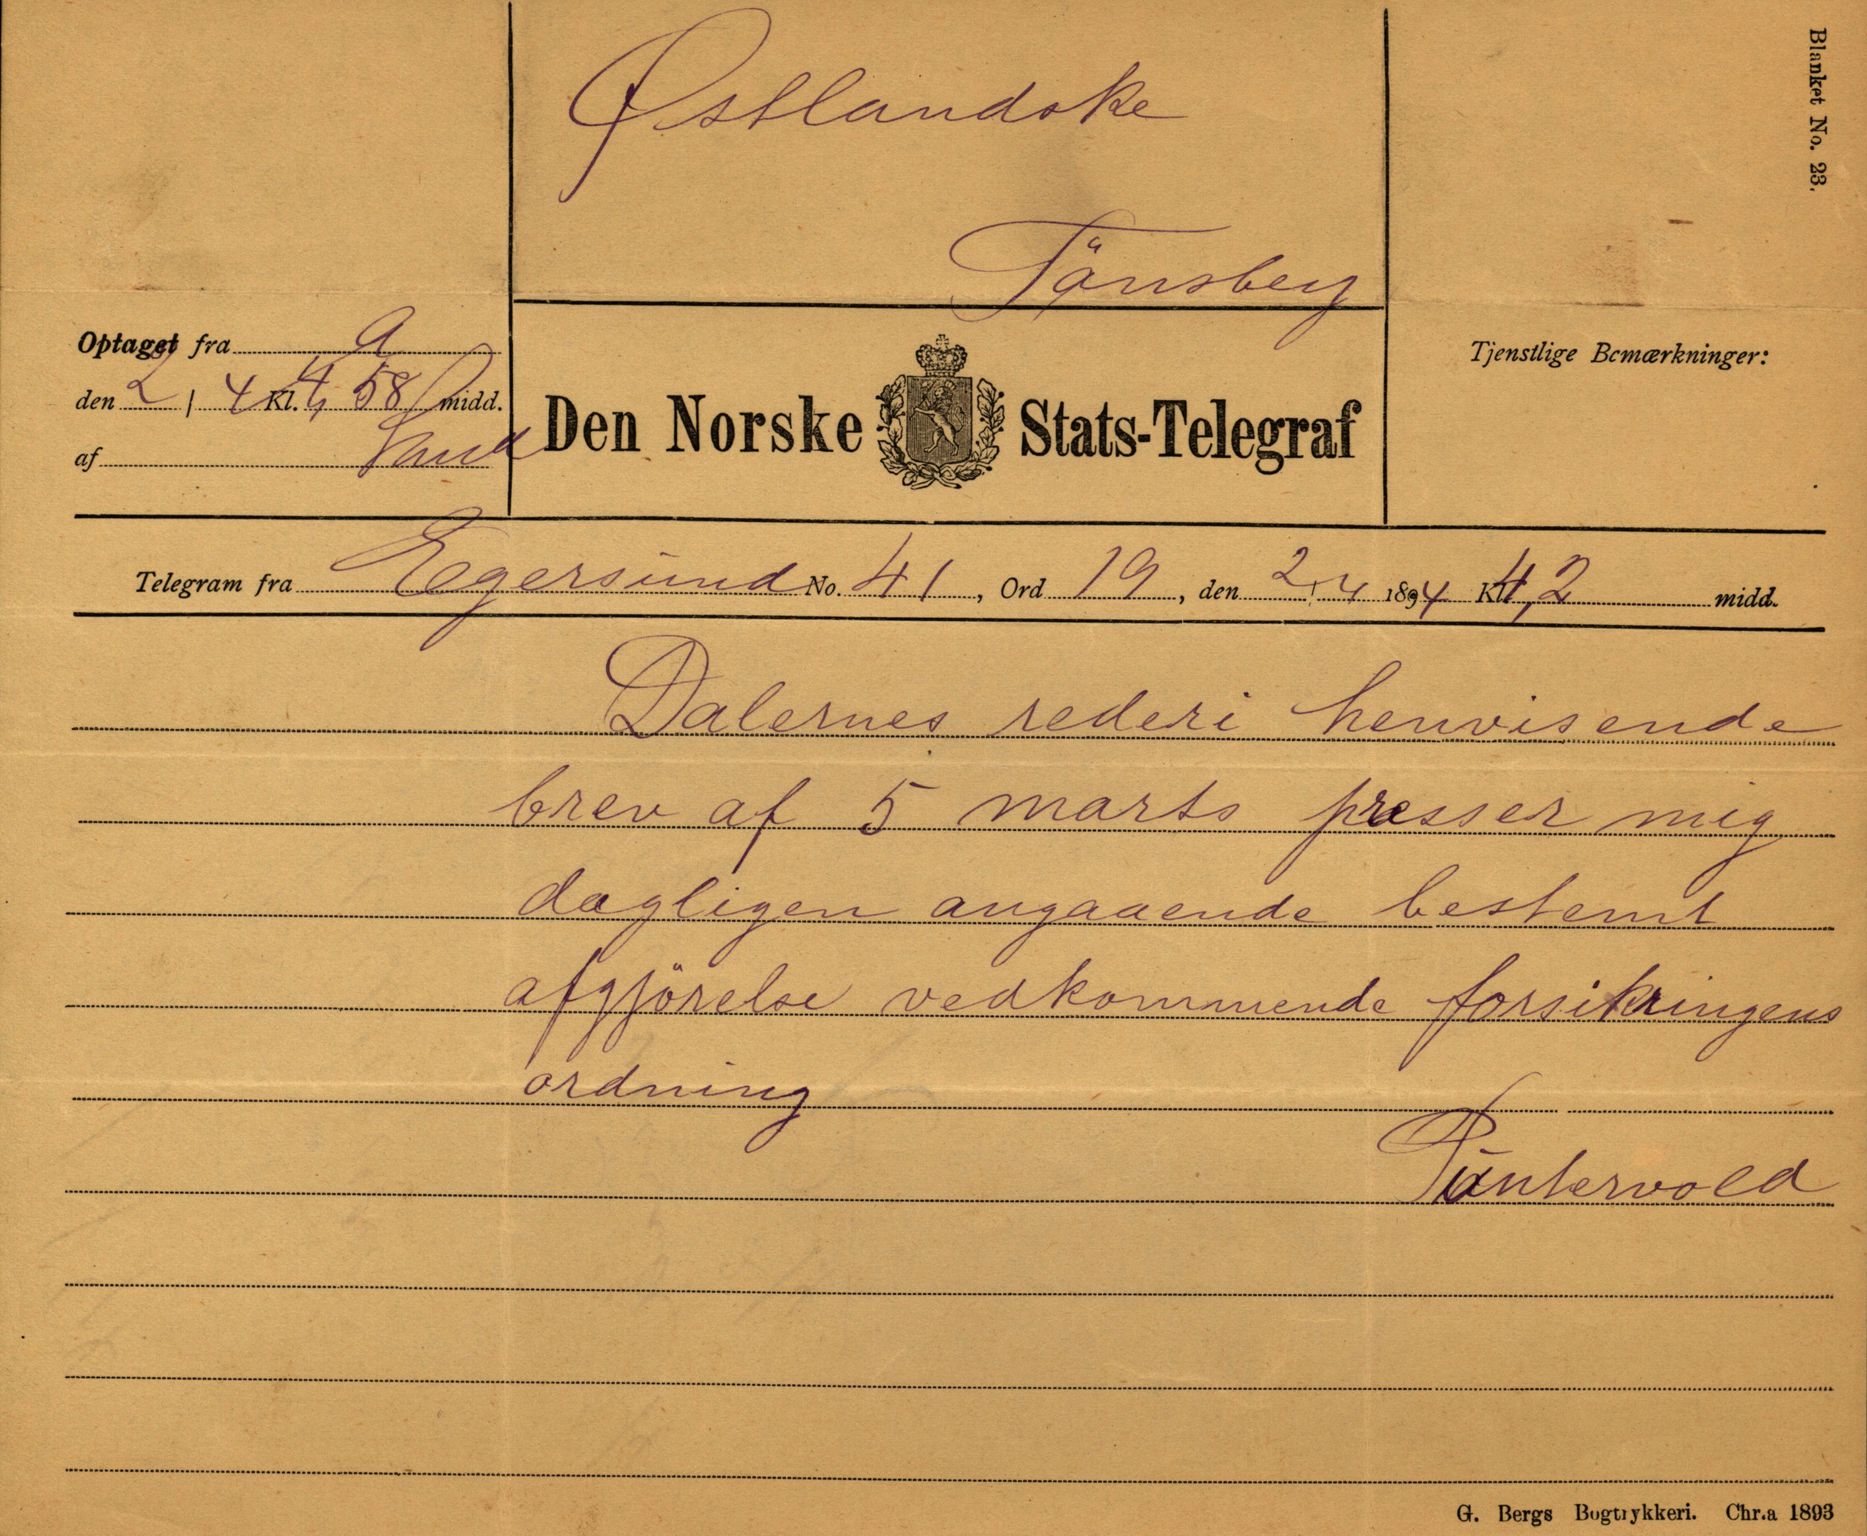 Blanket No. 23.
Østlandske
Tönsberg
Optaget fra A
den 2 / 4 Kl. 4,58 midd.
af
Den Norske Stats-Telegraf
Tjenstlige Bemærkninger:
Telegram fra Egersund No. 41, Ord 19, den 2 / 4 1894 Kl. 4,2 midd.
Dalernes rederi henvisende
brev af 5 marts presser mig
dagligen angaaende bestemt
afgjörelse vedkommende forsikringens
ordning
Puntervold
G. Bergs Bogtrykkeri. Chr.a 1893